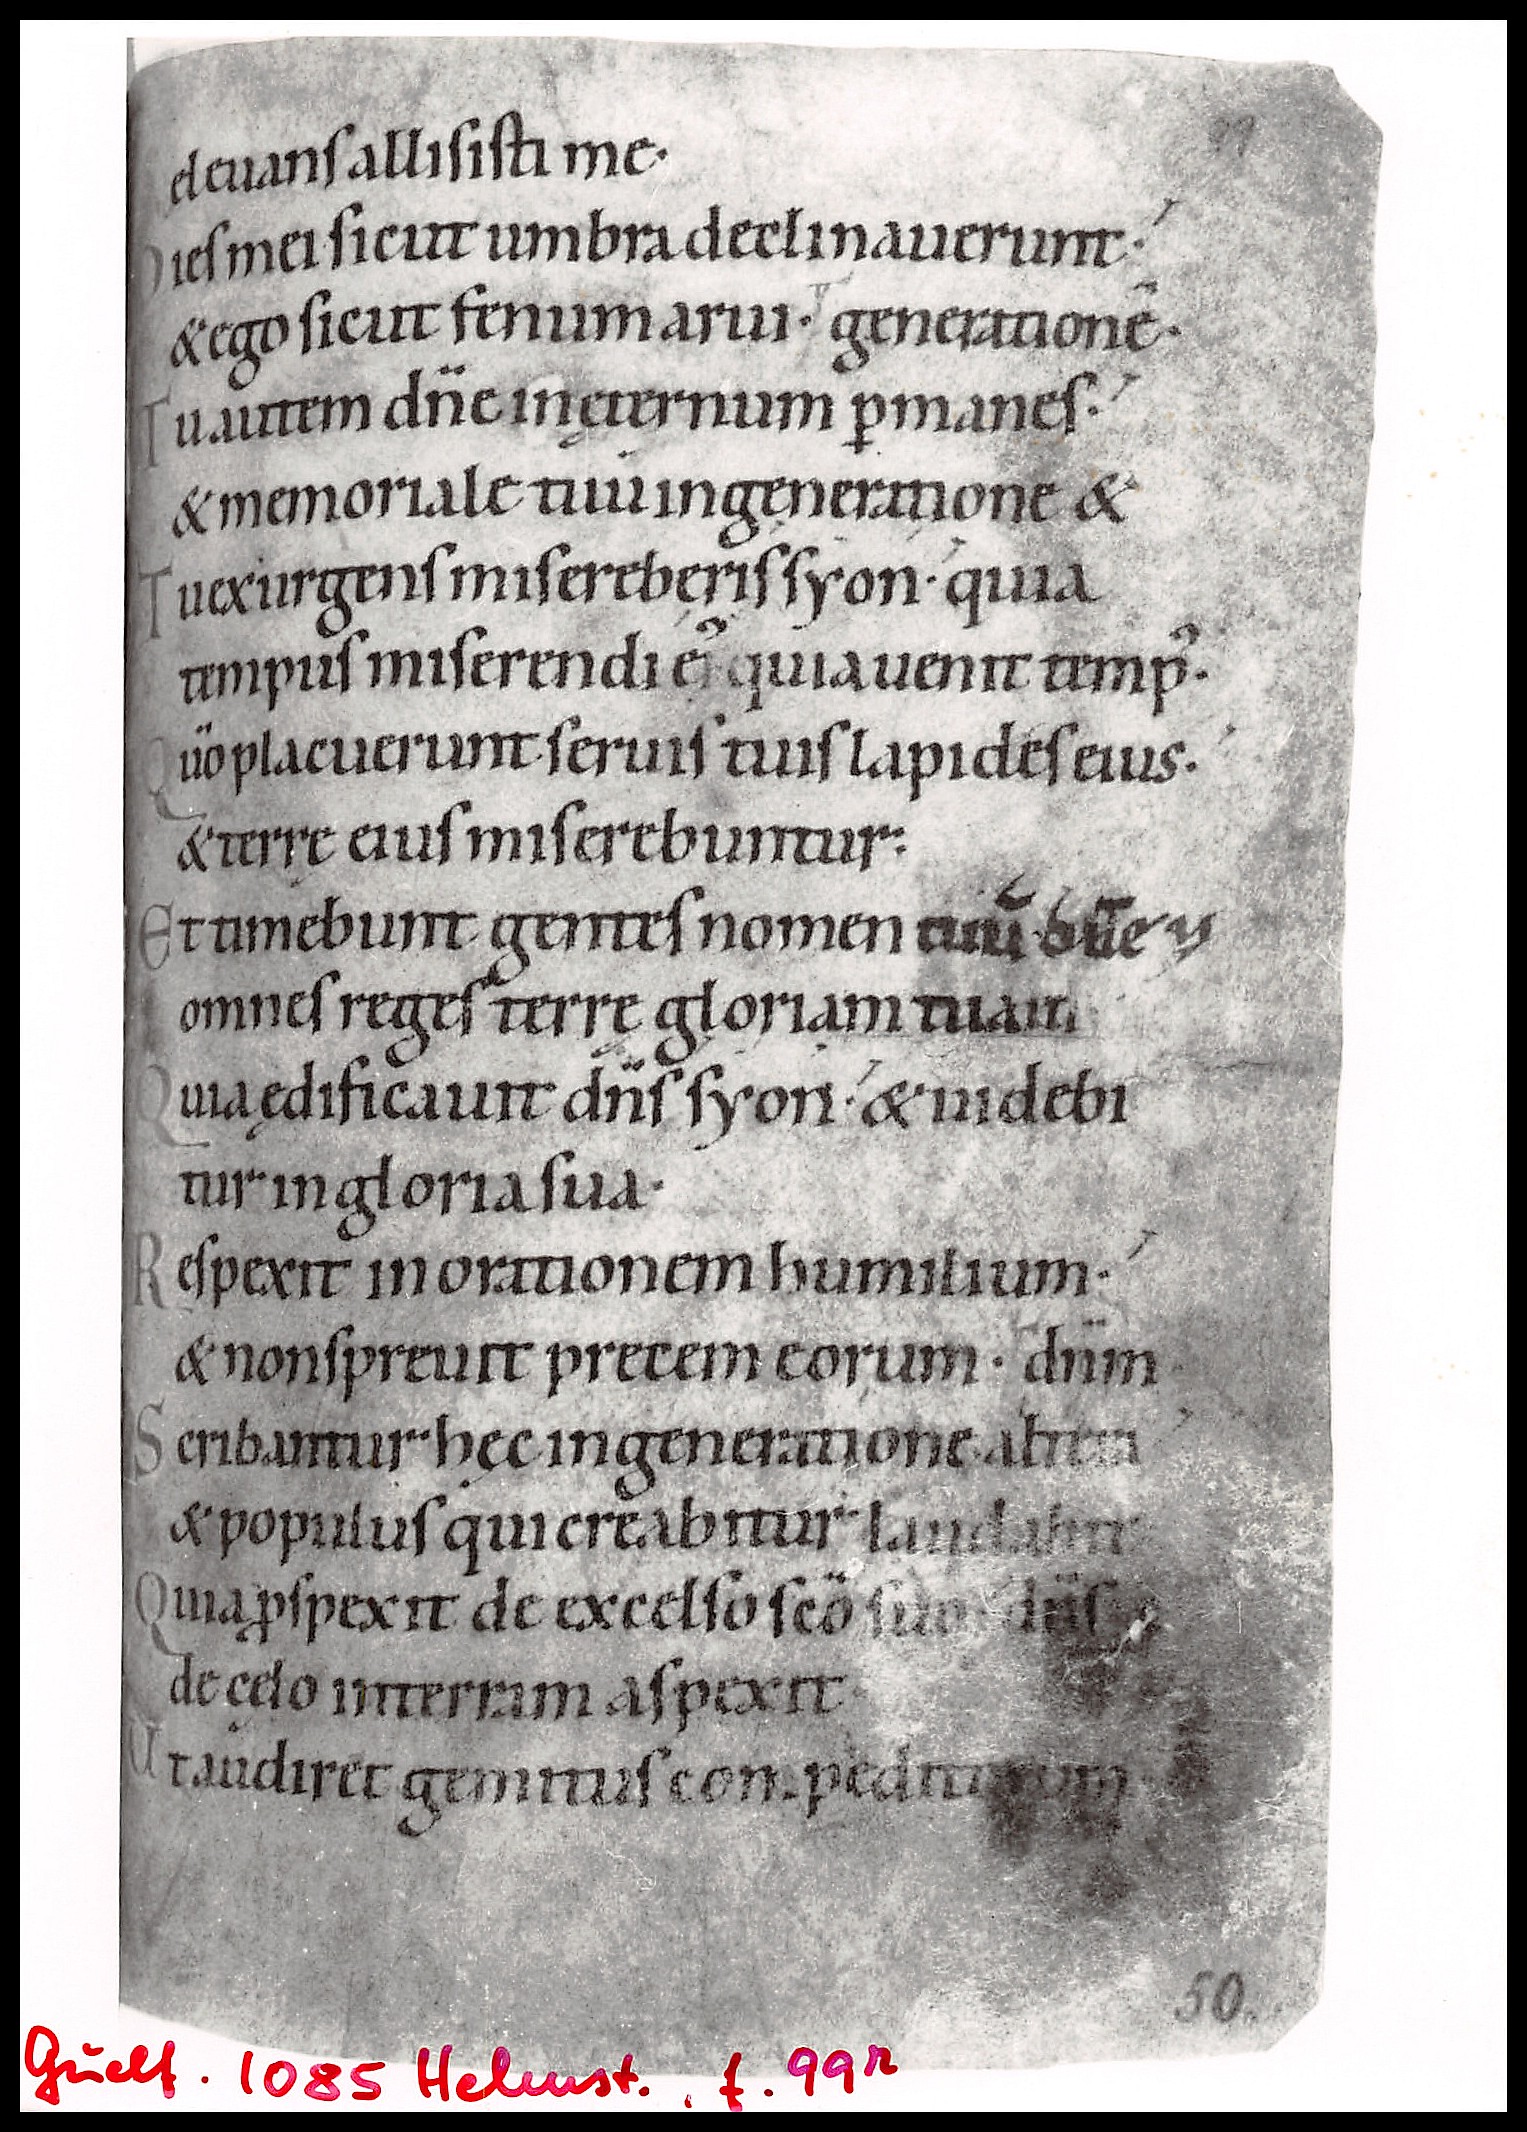 99
eleuans allisisti me·
Dies mei sicut umbra declinauerunt·
& ego sicut fenum arui· generationē·
Tu autem dñe in ęternum p̱manes·
& memoriale tuū in generatione &
Tu exurgens misereberis syon· quia
tempus miserendi ei᾽ quia uenit temp᾽·
Qūo placuerunt seruis tuis lapides eius·
& terre eius miserebuntur·
Et timebunt gentes nomen tuū dñe &
omnes reges terrę gloriam tuam
Quia ędificauit dñs syon· & uidebi
tur in gloria sua·
Respexit in orationem humilium·
& non spreuit precem eorum· dñm
Scribantur hęc in generatione altera
& populus qui creabitur laudabit
Quia ꝓspexit de excelso scō suo dñs
de cęlo in terram aspexit
Ut audiret gemitus con peditorum
50.
Guelf. 1085 Helmst., f. 99r